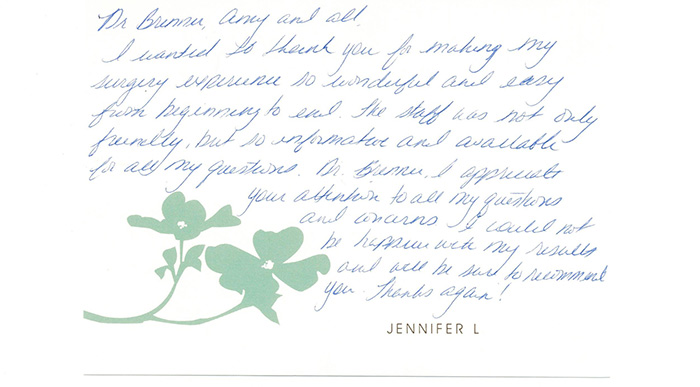 Dr Brenner, Amy and all.
I wanted to thank you for making my
surgery experience so wonderful and easy
from beginning to end. The staff was not only
friendly, but so informative and available
for all my questions. Dr. Brenner, I appreciate
your attention to all my questions
and concerns. I could not
be happier with my results
and will be sure to recommend
you. Thanks again!
JENNIFER L